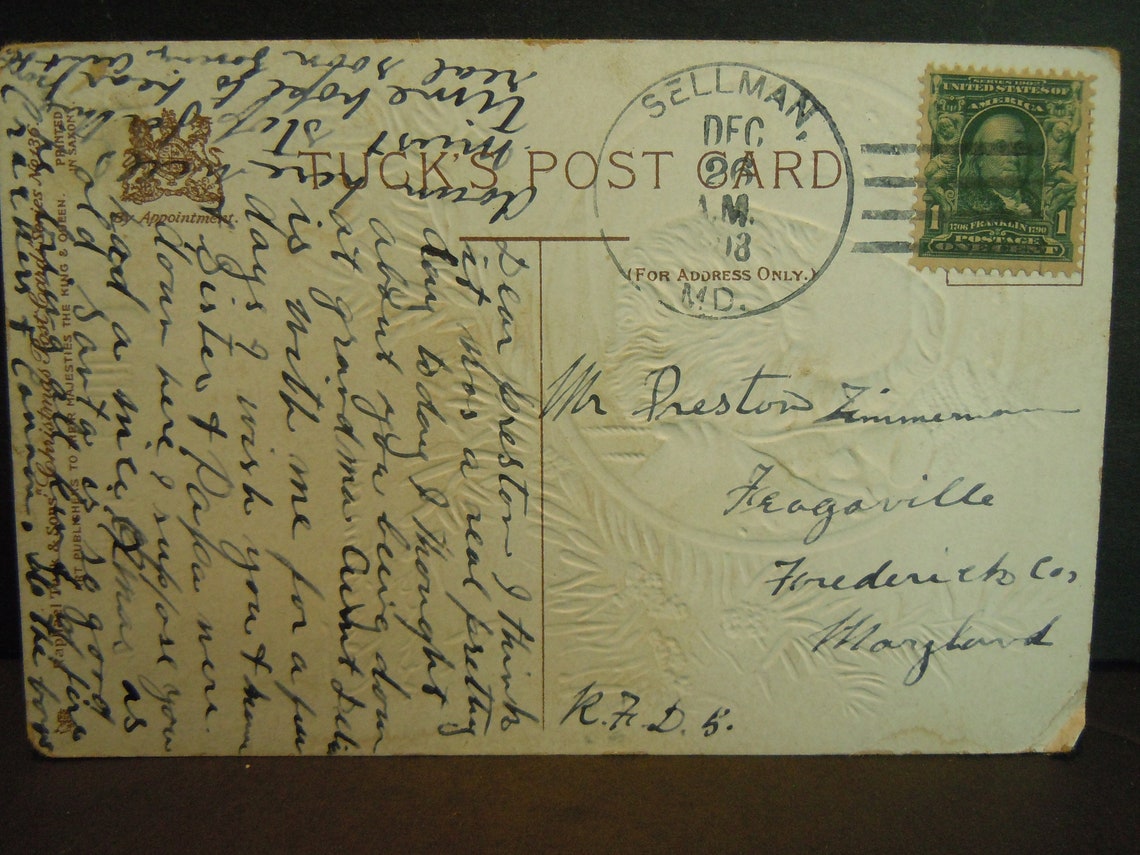 TUCK'S POST CARD
By Appointment.
(FOR ADDRESS ONLY.)
Raphael Tuck & Sons' "Christmas" Post Card Series No. 136
ART PUBLISHERS TO THEIR MAJESTIES THE KING & QUEEN. PRINTED IN SAXONY
SELLMAN,
DEC
26
A.M.
08
MD.
SERIES 1902
UNITED STATES OF AMERICA
1706 FRANKLIN 1790
1 1
POSTAGE
ONE CENT
Mr Preston Zimmerman
Feagaville
Frederick Co,
Maryland
R.F.D. 5.
Dear preston I think
it was a real pretty
day today I thought
about you being down
at grandmas Aunt
is with me for a few
days I wish you &
Sister & Papa were
down here I suppose you
had a nice Xmas as
old Santa is so good
down here
must
time hope to hear
real soon